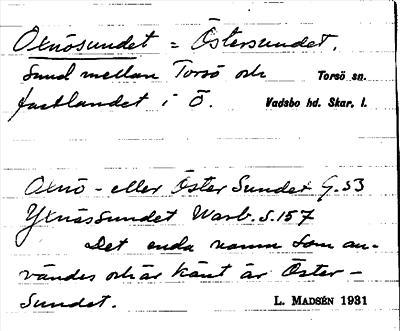 Oxnösundet = Östersundet.
Sund mellan Torsö och Torsö sn.
fastlandet i Ö. Vadsbo hd. Skar. l.
Oxnö- eller Öster Sundet G. 53
Yxnäs Sundet Warb. S. 157
Det enda namn som an-
vändes och är känt är Öster-
sundet. L. MADSÉN 1931